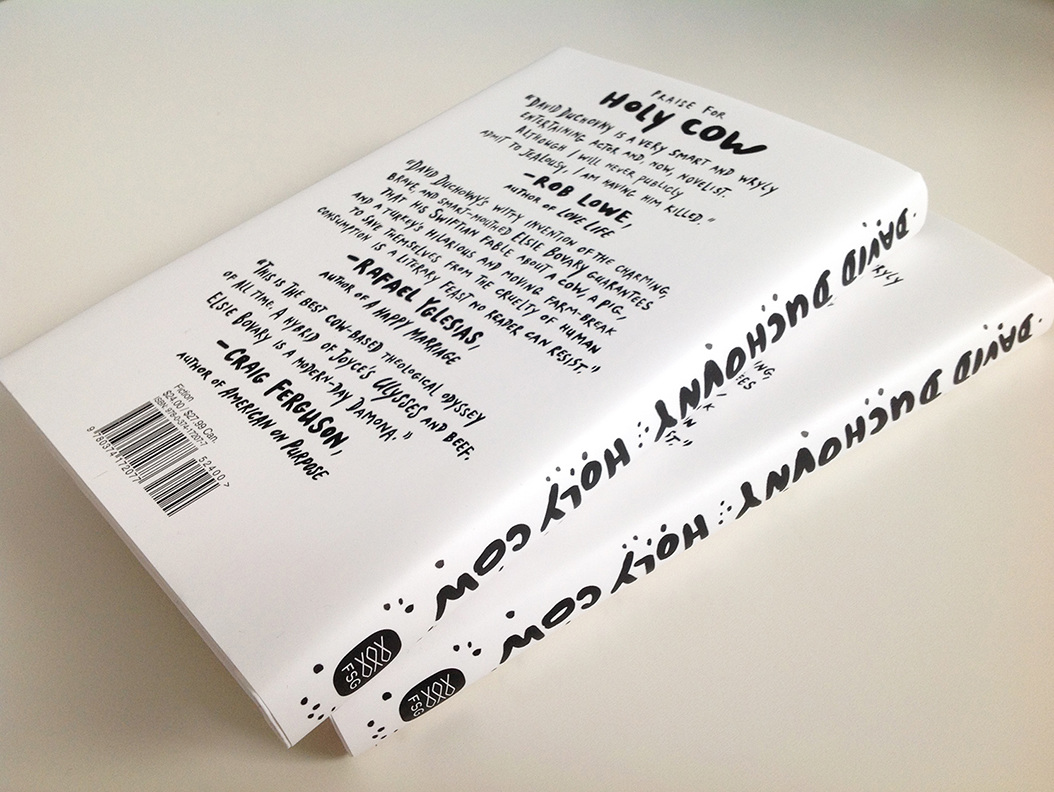 PRAISE FOR
HOLY COW
"DAVID DUCHOVNY IS A VERY SMART AND WRYLY
ENTERTAINING ACTOR AND, NOW, NOVELIST.
ALTHOUGH I WILL NEVER PUBLICLY
ADMIT TO JEALOUSY, I AM HAVING HIM KILLED."
—ROB LOWE,
AUTHOR OF LOVE LIFE
"DAVID DUCHOVNY'S WITTY INVENTION OF THE CHARMING,
BRAVE, AND SMART-MOUTHED ELSIE BOVARY GUARANTEES
THAT HIS SWIFTIAN FABLE ABOUT A COW, A PIG,
AND A TURKEY'S HILARIOUS AND MOVING FARM-BREAK
TO SAVE THEMSELVES FROM THE CRUELTY OF HUMAN
CONSUMPTION IS A LITERARY FEAST NO READER CAN RESIST."
—RAFAEL YGLESIAS,
AUTHOR OF A HAPPY MARRIAGE
"THIS IS THE BEST COW-BASED THEOLOGICAL ODYSSEY
OF ALL TIME. A HYBRID OF JOYCE'S ULYSSES AND BEEF,
ELSIE BOVARY IS A MODERN-DAY DAMONA."
—CRAIG FERGUSON,
AUTHOR OF AMERICAN ON PURPOSE
Fiction
$24.00 / $27.99 Can.
ISBN 978-0-374-17207-7
52400>
9780374172077
DAVID DUCHOVNY HOLY COW
FSG
RYLY
ING,
EES
DAVID DUCHOVNY HOLY COW
FSG